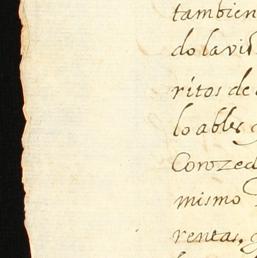 tambien
do la vid
ritos de
loables
Corozed
mismo
rentas,